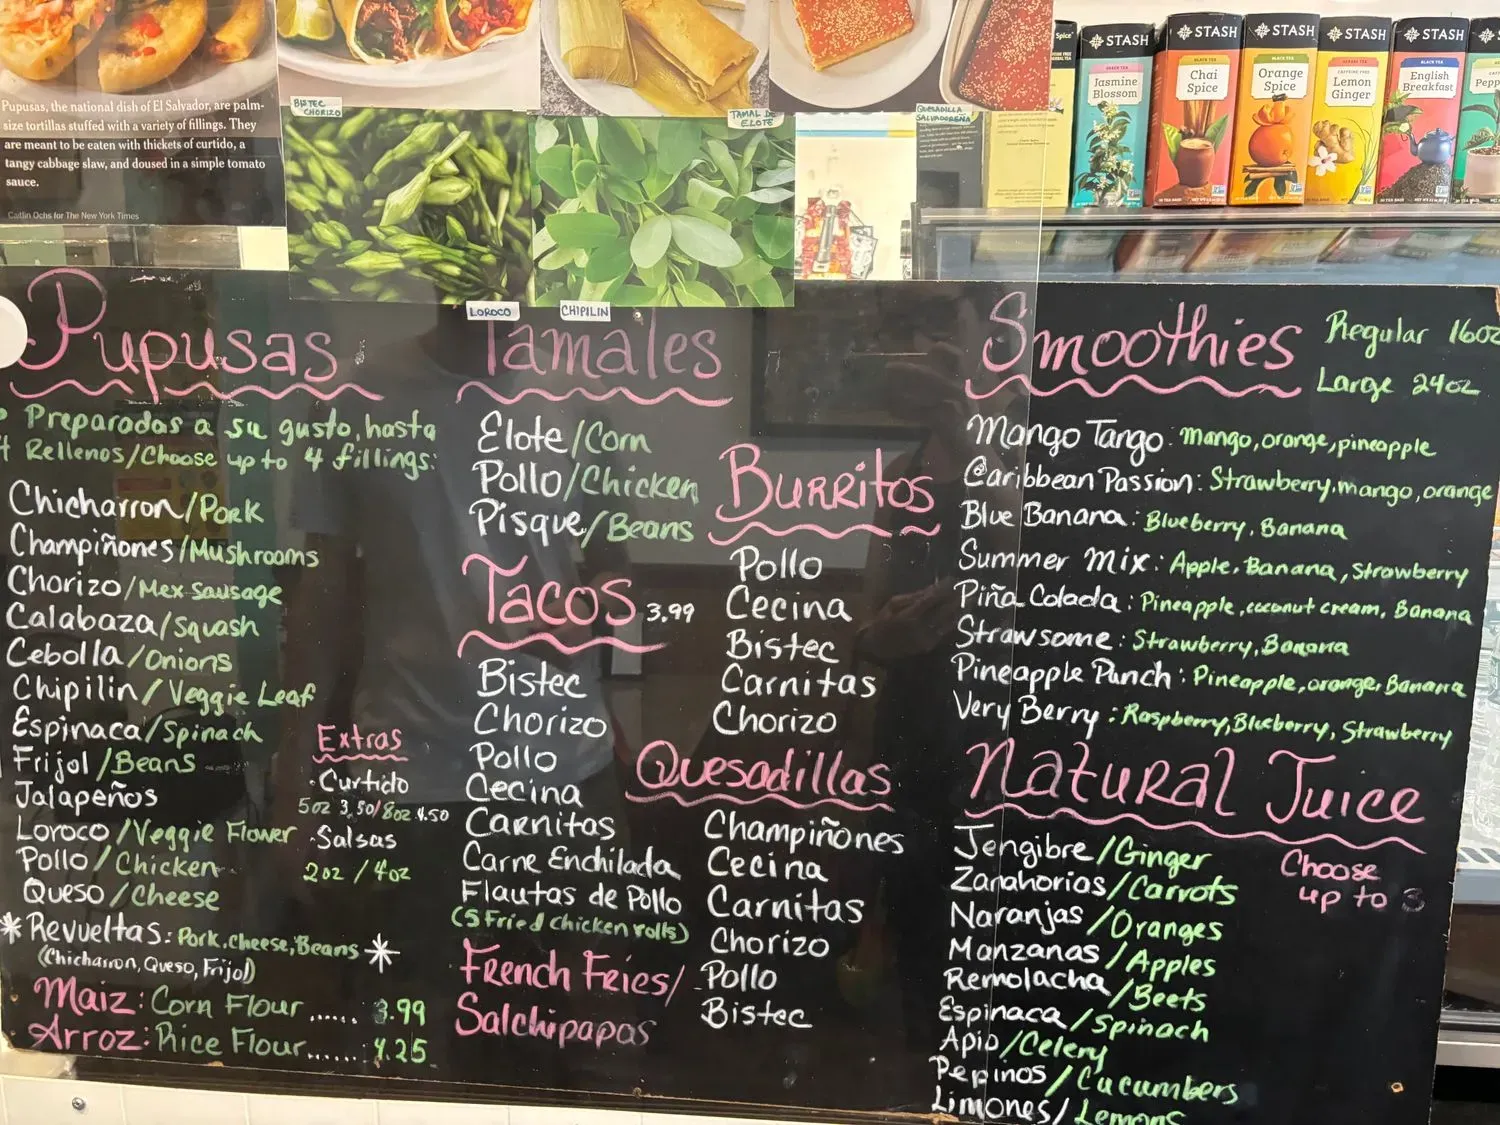 Pupusas, the national dish of El Salvador, are palm-
size tortillas stuffed with a variety of fillings. They
are meant to be eaten with thickets of curtido, a
tangy cabbage slaw, and doused in a simple tomato
sauce.
Caitlin Ochs for The New York Times
BISTEC
CHORIZO
TAMAL DE
ELOTE
QUESADILLA
SALVADOREÑA
LOROCO
CHIPILIN
Spice
STASH
Jasmine
Blossom
STASH
BLACK TEA
Chai
Spice
STASH
BLACK TEA
Orange
Spice
STASH
HERBAL TEA
CAFFEINE FREE
Lemon
Ginger
STASH
BLACK TEA
English
Breakfast
STASH
Pepp
Pupusas
Preparadas a su gusto, hasta
4 Rellenos/Choose up to 4 fillings:
Chicharron/Pork
Champiñones/Mushrooms
Chorizo/Mex Sausage
Calabaza/Squash
Cebolla/Onions
Chipilin/Veggie Leaf
Espinaca/Spinach
Frijol/Beans
Jalapeños
Loroco/Veggie Flower
Pollo/Chicken
Queso/Cheese
*Revueltas: Pork, cheese, Beans*
(Chicharron, Queso, Frijol)
Maiz: Corn Flour ...... 3.99
Arroz: Rice Flour....... 4.25
Extras
·Curtido
5oz 3.50/8oz 4.50
·Salsas
2oz / 4oz
Tamales
Elote/Corn
Pollo/Chicken
Pisque/Beans
Tacos 3.99
Bistec
Chorizo
Pollo
Cecina
Carnitas
Carne Enchilada
Flautas de Pollo
(5 Fried Chicken rolls)
French Fries/
Salchipapas
Burritos
Pollo
Cecina
Bistec
Carnitas
Chorizo
Quesadillas
Champiñones
Cecina
Carnitas
Chorizo
Pollo
Bistec
Smoothies
Regular 16oz
Large 24oz
Mango Tango: mango, orange, pineapple
Caribbean Passion: Strawberry, mango, orange
Blue Banana: Blueberry, Banana
Summer Mix: Apple, Banana, Strawberry
Piña Colada: Pineapple, coconut cream, Banana
Strawsome: Strawberry, Banana
Pineapple Punch: Pineapple, orange, Banana
Very Berry: Raspberry, Blueberry, Strawberry
Natural Juice
Choose
up to 3
Jengibre/Ginger
Zanahorias/Carrots
Naranjas/Oranges
Manzanas/Apples
Remolacha/Beets
Espinaca/Spinach
Apio/Celery
Pepinos/Cucumbers
Limones/Lemons